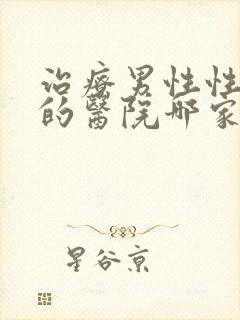 治療男性性
的醫院那家
星谷京